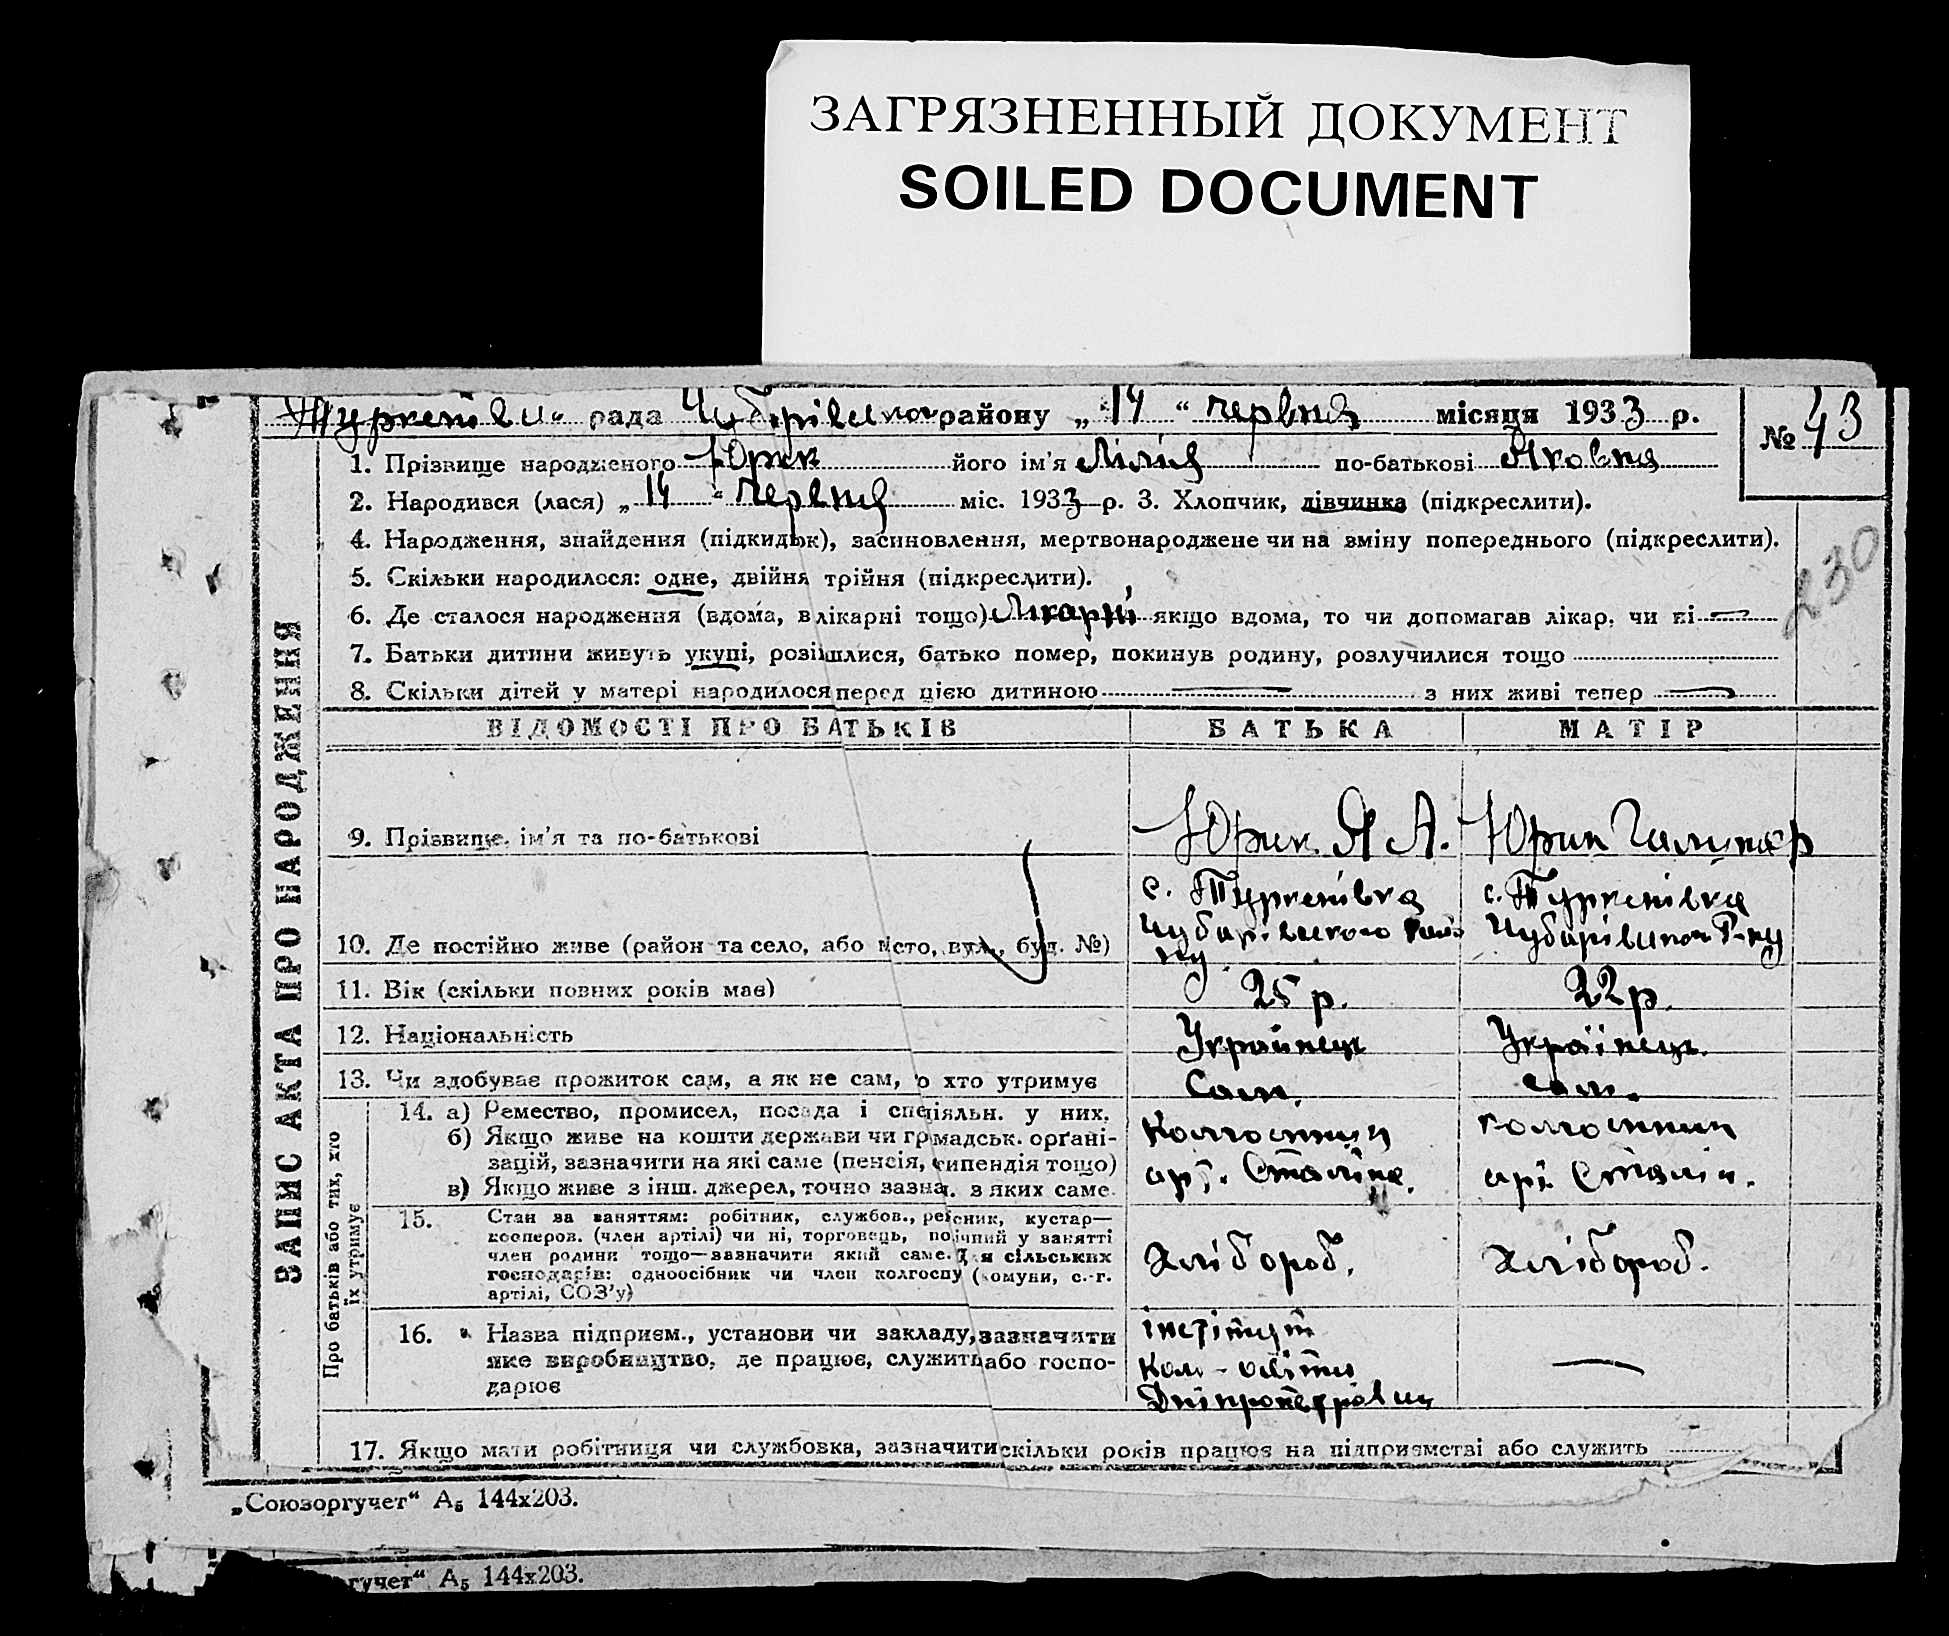 ЗАГРЯЗНЕННЫЙ ДОКУМЕНТ
SOILED DOCUMENT
рада району „14“ червня місяця 1933 р.
№ 43
1. Прізвище народженого Юрик його ім'я Лілія по-батькові Яковна
2. Народився (лася) „14“ червня міс. 1933 р. 3. Хлопчик, дівчинка (підкреслити).
4. Народження, знайдення (підкидьок), засиновлення, мертвонароджене чи на зміну попереднього (підкреслити).
230
5. Скільки народилося: одне, двійня трійня (підкреслити).
6. Де сталося народження (вдома, в лікарні тощо) Лікарні якщо вдома, то чи допомагав лікар, чи ні —
7. Батьки дитини живуть укупі, розійшлися, батько помер, покинув родину, розлучилися тощо
8. Скільки дітей у матері народилося перед цією дитиною — з них живі тепер —
ЗАПИС АКТА ПРО НАРОДЖЕННЯ
ВІДОМОСТІ ПРО БАТЬКІВ БАТЬКА МАТІР
9. Прізвище, ім'я та по-батькові Юрик Я А. Юрик
10. Де постійно живе (район та село, або місто, вул., буд. №)
с. Туркенівка
Чубарівського
с. Туркенівка
11. Вік (скільки повних років має) 25 р. 22 р.
12. Національність Українець Українець.
13. Чи здобуває прожиток сам, а як не сам, то хто утримує Сам. сам.
Про батьків або тих, хто
їх утримує
14. а) Ремество, промисел, посада і спеціяльн. у них.
б) Якщо живе на кошти держави чи громадськ. органі-
зацій, зазначити на які саме (пенсія, стипендія тощо)
в) Якщо живе з інш. джерел, точно зазнач. з яких саме.
Колгоспник
арт. Сталіна.
колгоспник
арт. Сталін.
15. Стан за заняттям: робітник, службов., ремісник, кустар—
кооперов. (член артілі) чи ні, торговець, помічний у занятті
член родини тощо—зазначити який саме. Для сільських
господарів: одноосібник чи член колгоспу (комуни, с.-г.
артілі, СОЗ'у)
Хлібороб. Хлібороб.
16. Назва підприєм., установи чи закладу, зазначити
яке виробництво, де працює, служить або госпо-
дарює
інстітут
Дніпропетровськ
—
17. Якщо мати робітниця чи службовка, зазначити скільки років працює на підприємстві або служить
„Союзоргучет“ А5 144х203.
гучет“ А5 144х203.